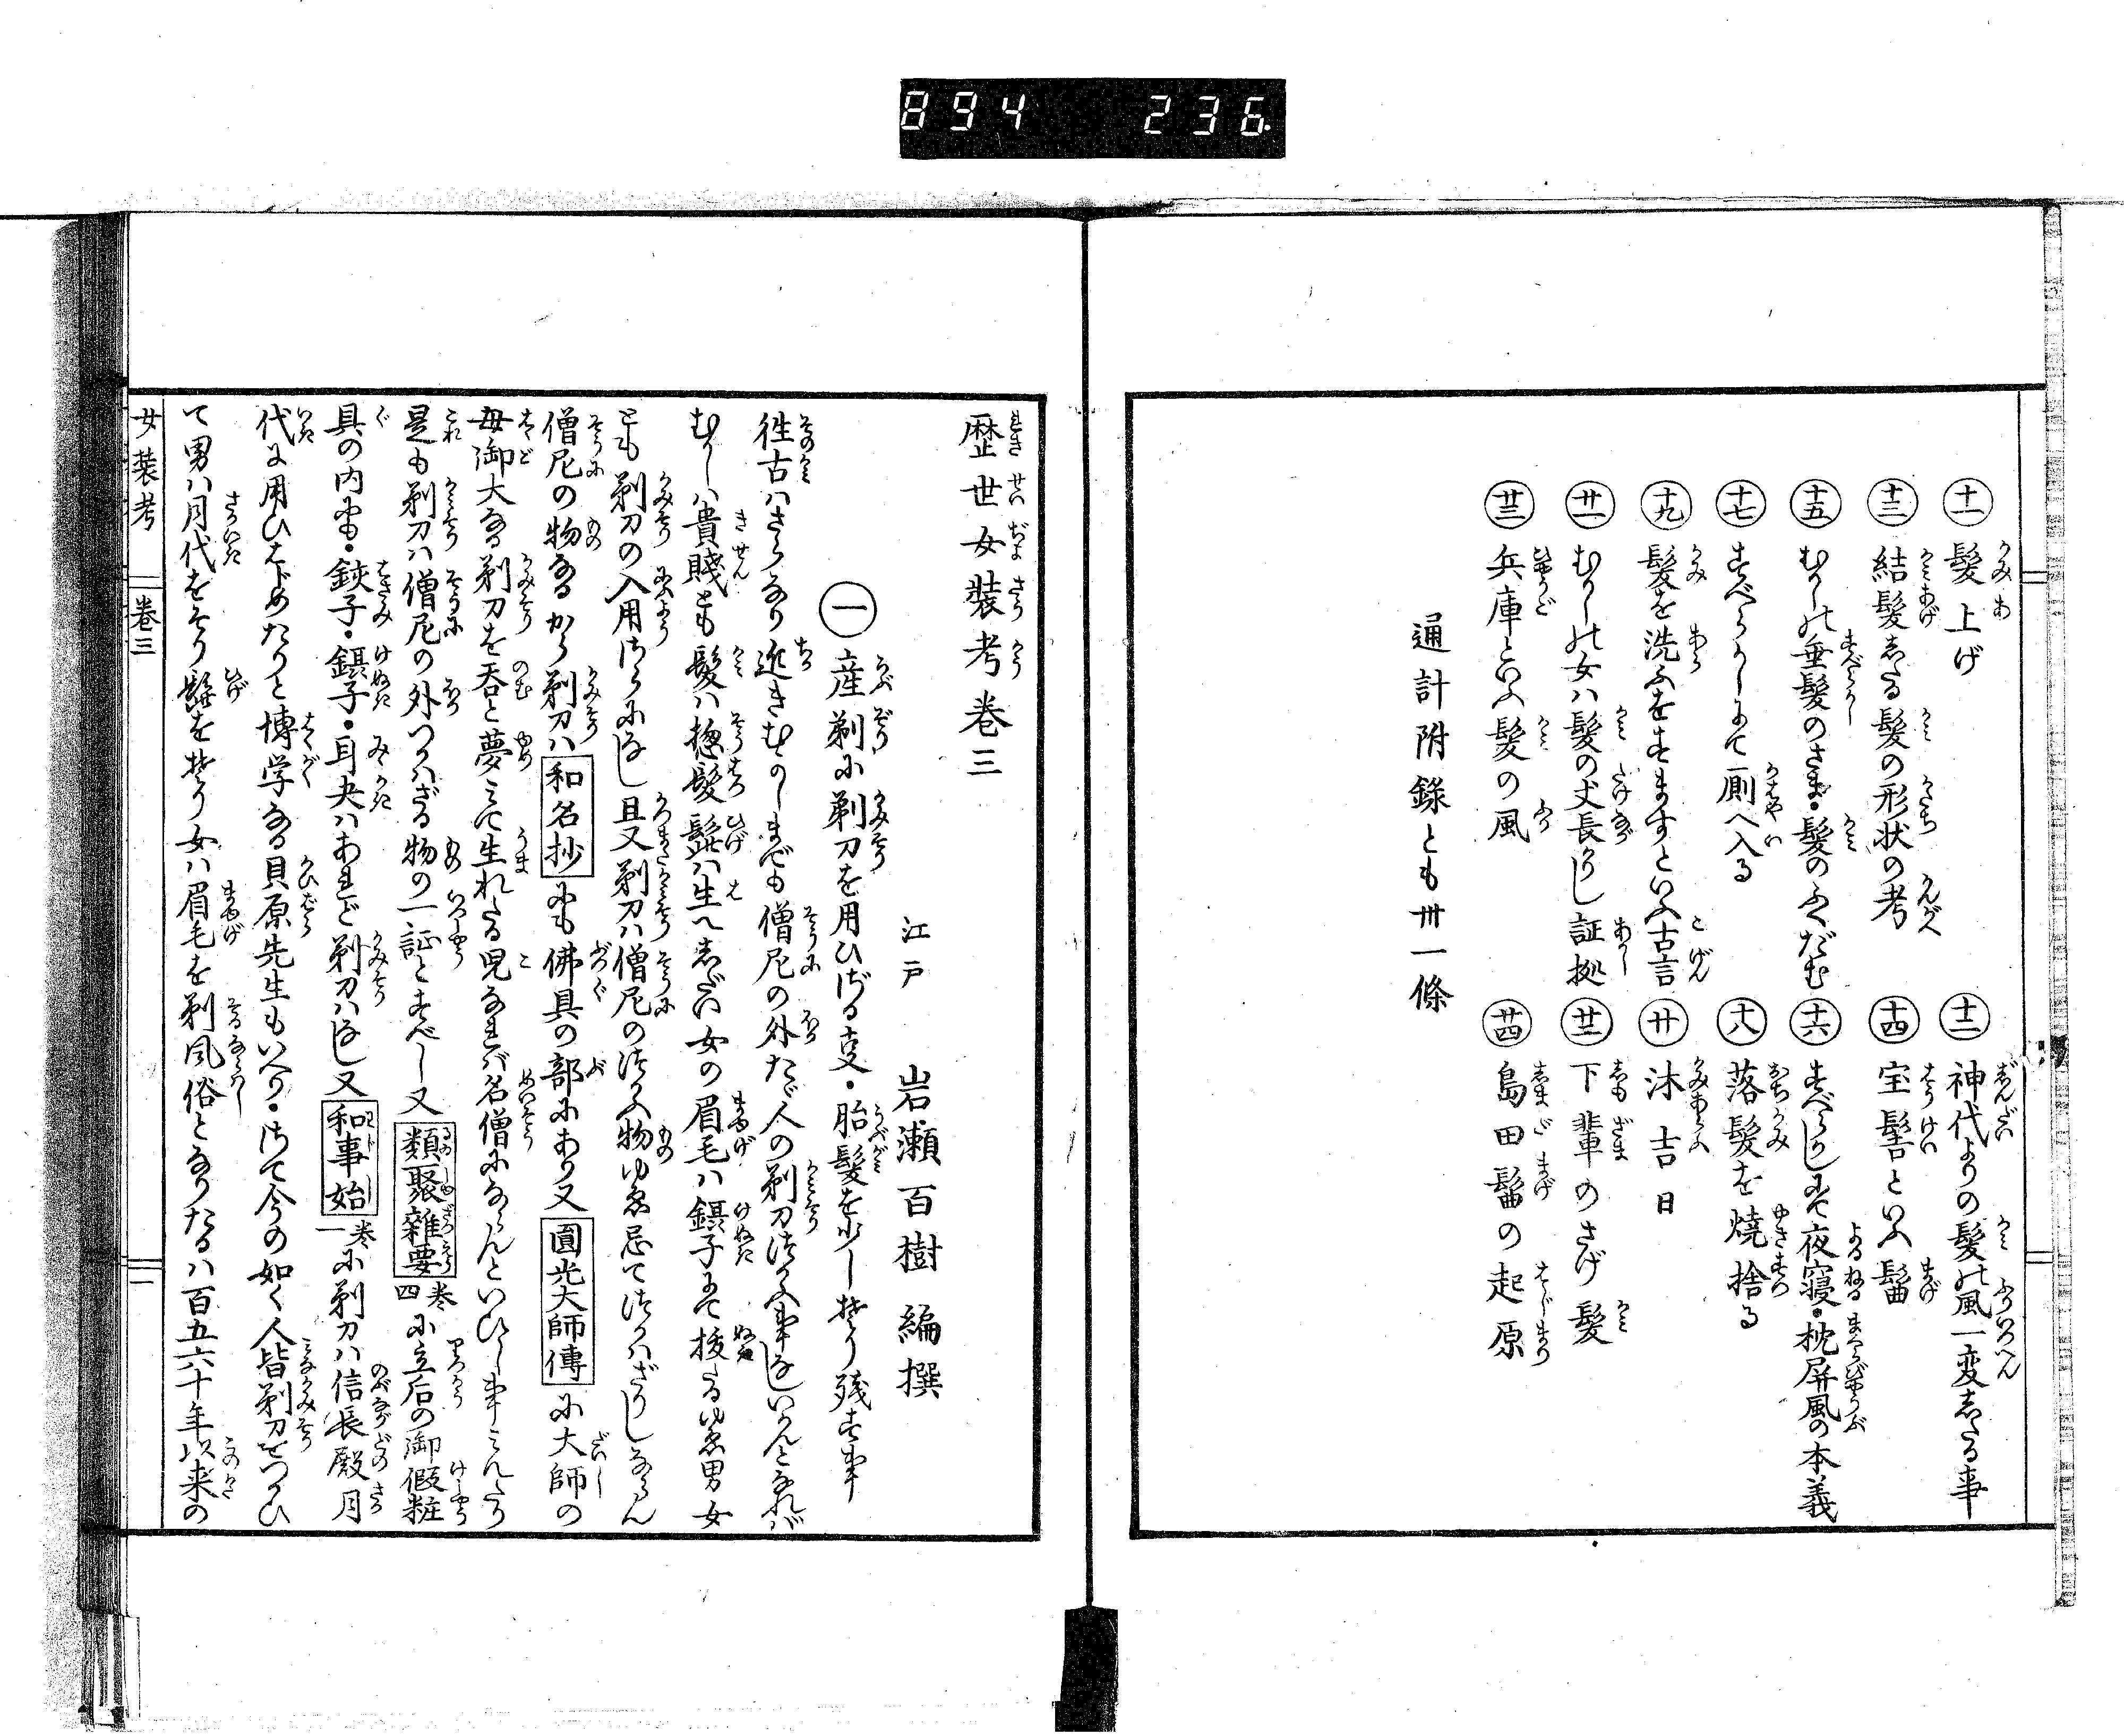 894 236
十一 髪上げ
十二 神代よりの髪の風一変したる事
十三 結髪したる髪の形状の考
十四 宝髻といふ髷
十五 むかしの垂髪のさま・髪のふくだむ
十六 すべらかしにて夜寝・枕屏風の本義
十七 すべらかしにて厠へ入る
十八 落髪を焼捨る
十九 髪を洗ふをすますといふ古言
廿 沐吉日
廿一 むかしの女ハ髪の丈長かりし証拠
廿二 下輩のさげ髪
廿三 兵庫といふ髪の風
廿四 島田髷の起原
通計附錄とも卅一條
歴世女装考卷三
江戸 岩瀬百樹 編撰
一 産剃に剃刀を用ひざる叓・胎髪を少し剃り残す事
徃古ハさらなり近きむかしまでも僧尼の外たゞ人の剃刀つかふ事なしいかんとなれバ
むかしハ貴賤とも髪ハ惣髪髭ハ生へしだい女の眉毛ハ鑷子にて抜たるゆゑ男女
とも剃刀の入用さらになし且又剃刀ハ僧尼のつかふ物ゆゑ忌てつかハざりしならん
僧尼の物なるから剃刀ハ和名抄にも佛具の部にあり又圓光大師傳に大師の
母御大なる剃刀を呑と夢ミて生れたる児なれバ名僧にならんといひし事ミえたり
是も剃刀ハ僧尼の外つかハざる物の一証とすべし又類聚雜要卷四に立后の御假粧
具の内にも・鋏子・鑷子・耳夬ハあれど剃刀ハなし又和事始卷一に剃刀ハ信長殿月
代に用ひはじめたりと博学なる貝原先生もいへり・さて今の如く人皆剃刀をつかひ
て男ハ月代をそり髭を剃り女ハ眉毛を剃風俗となりたるハ百五六十年以来の
女装考 卷三 一